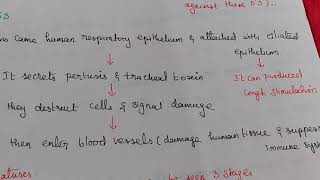 against these D'S)..
came human respiratory epithelium & attached with ciliated epithelium
It secrets pertusis & tracheal toxin
It can produced Cough Stimulation
they destruct cells & signal damage
then enter blood vessels (damage human tissue & suppress immune sys
seen 3 stages